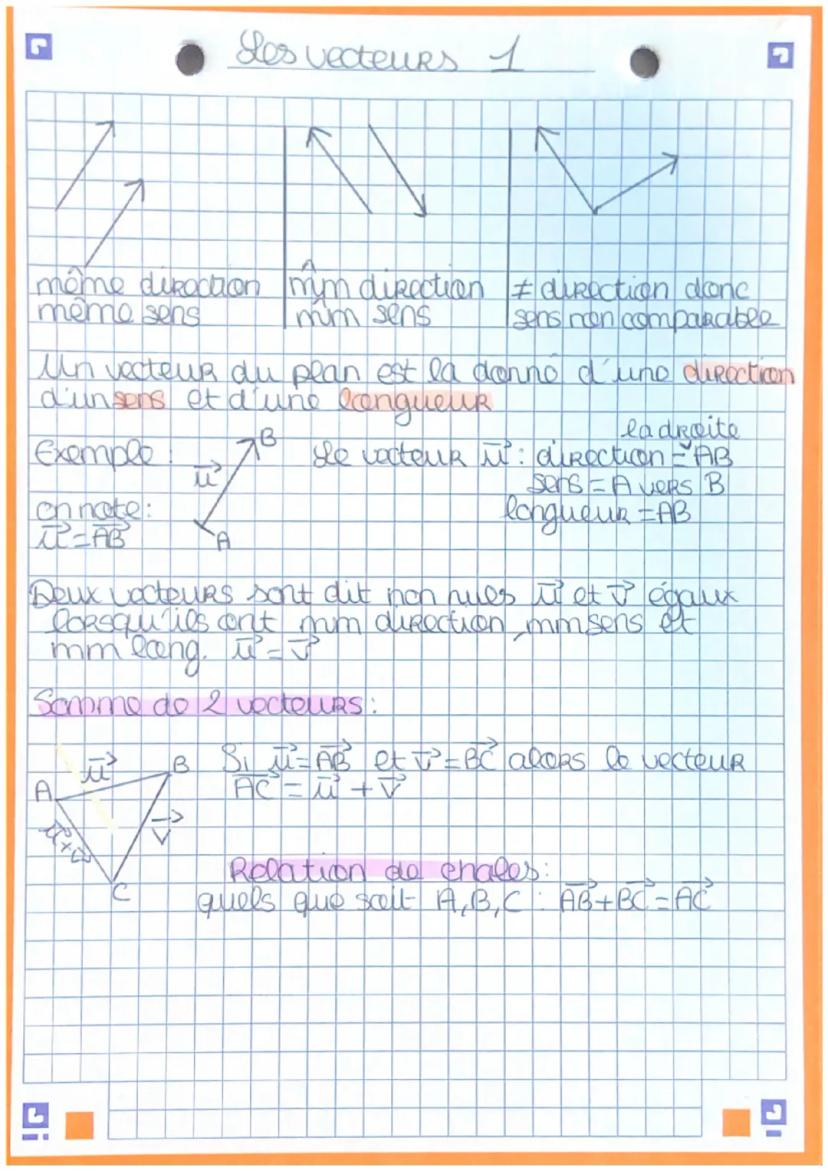 Les vecteurs 1
même direction
même sens
m̂m direction
m̂m sens
≠ direction donc
sens non comparable
Un vecteur du plan est la donné d'une direction
d'un sens et d'une longueur
Exemple :
u⃗
B
A
on note:
u⃗ = AB⃗
la droite
Le vecteur u⃗ : direction = AB
sens = A vers B
longueur = AB
Deux vecteurs sont dit non nuls u⃗ et v⃗ égaux
lorsqu'ils ont mm direction, mm sens et
mm long. u⃗ = v⃗
Somme de 2 vecteurs :
A
u⃗
B
v⃗
u⃗+v⃗
C
Si u⃗ = AB⃗ et v⃗ = BC⃗ alors le vecteur
AC⃗ = u⃗ + v⃗
Relation de chales :
quels que soit A, B, C : AB⃗ + BC⃗ = AC⃗